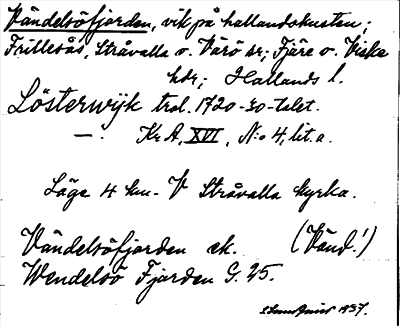 Vändelsöfjorden, vik på hallandskusten;
Frillesås, Stråvalla o. Värö sr; Fjäre o. Viske
hdr; Hallands l.
Lösterwijk trol. 1720-30-talet.
—: Kr A, XVI, N:o 4, lit. a.
Läge 4 km. V Stråvalla kyrka.
Vändelsöfjorden ek. (Vänd.!)
Wendelsö Fjärden G. 25.
1937.